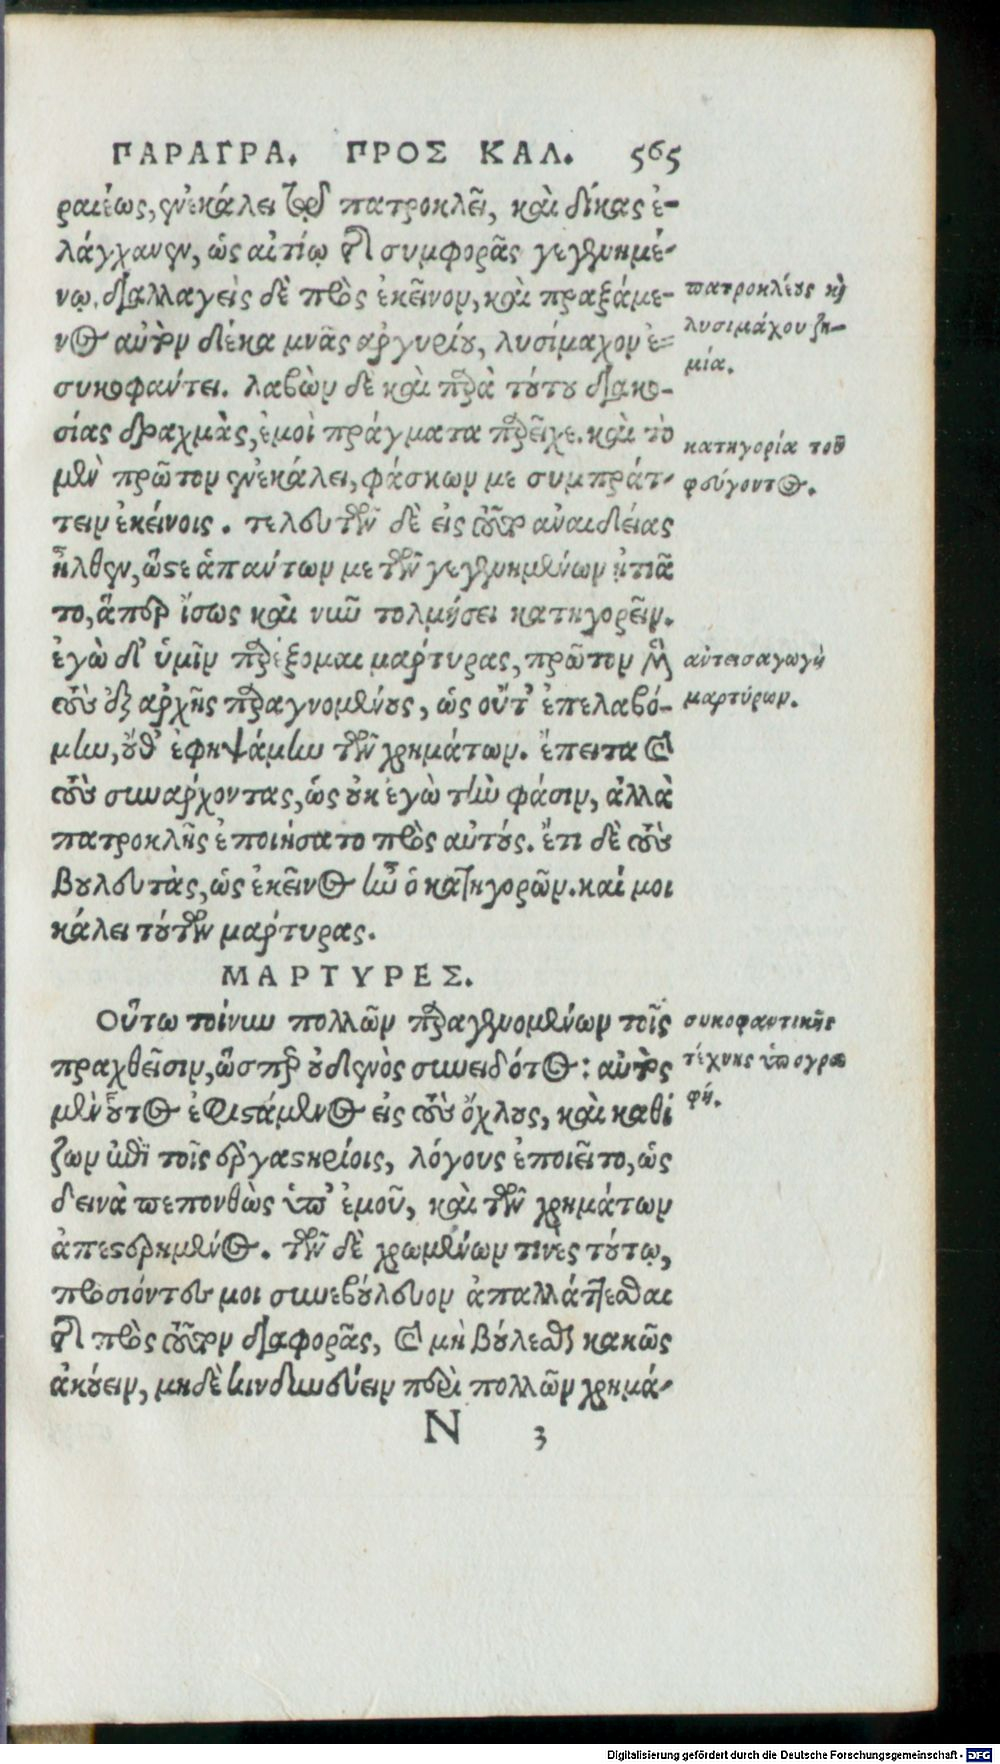 ΠΑΡΑΓΡΑ. ΠΡΟΣ ΚΑΛ. 565
ραιέως, ἐνεκάλει τῷ πατροκλεῖ, καὶ δίκας ἐ-
λάγχανεν, ὡς αἰτίῳ τῆς συμφορᾶς γεγενημέ-
νῳ. διαλλαγεὶς δὲ πρὸς ἐκεῖνον, καὶ πραξάμε-
νος αὐτὸν δέκα μνᾶς ἀργυρίου, λυσίμαχον ἐ-
συκοφάντει. λαβὼν δὲ καὶ παρὰ τούτου διακο-
σίας δραχμὰς, ἐμοὶ πράγματα παρεῖχε. καὶ τὸ
μὲν πρῶτον ἐνεκάλει, φάσκων με συμπράτ-
τειν ἐκείνοις. τελευτῶν δὲ εἰς τοῦτο ἀναιδείας
ἦλθεν, ὥστε ἁπάντων με τῶν γεγενημένων ᾐτιᾶ
το, ἅπερ ἴσως καὶ νῦν τολμήσει κατηγορεῖν.
ἐγὼ δ' ὑμῖν παρέξομαι μάρτυρας, πρῶτον μὲν
τοὺς ἐξ ἀρχῆς παραγνομένους, ὡς οὔτ' ἐπελαβό-
μην, οὔθ' ἐφηψάμην τῶν χρημάτων. ἔπειτα καὶ
τοὺς συνάρχοντας, ὡς οὐκ ἐγὼ τὴν φάσιν, ἀλλὰ
πατροκλῆς ἐποιήσατο πρὸς αὐτούς. ἔτι δὲ τοὺς
βουλευτὰς, ὡς ἐκεῖνος ἦν ὁ κατηγορῶν. καί μοι
κάλει τούτων μάρτυρας.
ΜΑΡΤΥΡΕΣ.
Οὕτω τοίνυν πολλῶν παραγενομένων τοῖς
πραχθεῖσιν, ὥσπερ οὐδενὸς συνειδότος: αὐτὸς
μὲν οὗτος ἐφιστάμενος εἰς τοὺς ὄχλους, καὶ καθί
ζων ἐπὶ τοῖς ἐργαστηρίοις, λόγους ἐποιεῖτο, ὡς
δεινὰ πεπονθὼς ὑπ' ἐμοῦ, καὶ τῶν χρημάτων
ἀπεστερημένος. τῶν δὲ χρωμένων τινὲς τούτῳ,
προσιόντες μοι συνεβούλευον ἀπαλλάττεσθαι
τῆς πρὸς τοῦτον διαφορᾶς, καὶ μὴ βούλεσθαι κακῶς
ἀκούειν, μηδὲ κινδυνεύειν περὶ πολλῶν χρημά-
Ν 3
πατροκλέους καὶ
λυσιμάχου ζη-
μία.
κατηγορία τοῦ
φεύγοντος.
ἀντεισαγωγὴ
μαρτύρων.
συκοφαντικῆς
τέχνης ὑπογρα
φή.
Digitalisierung gefördert durch die Deutsche Forschungsgemeinschaft - DFG